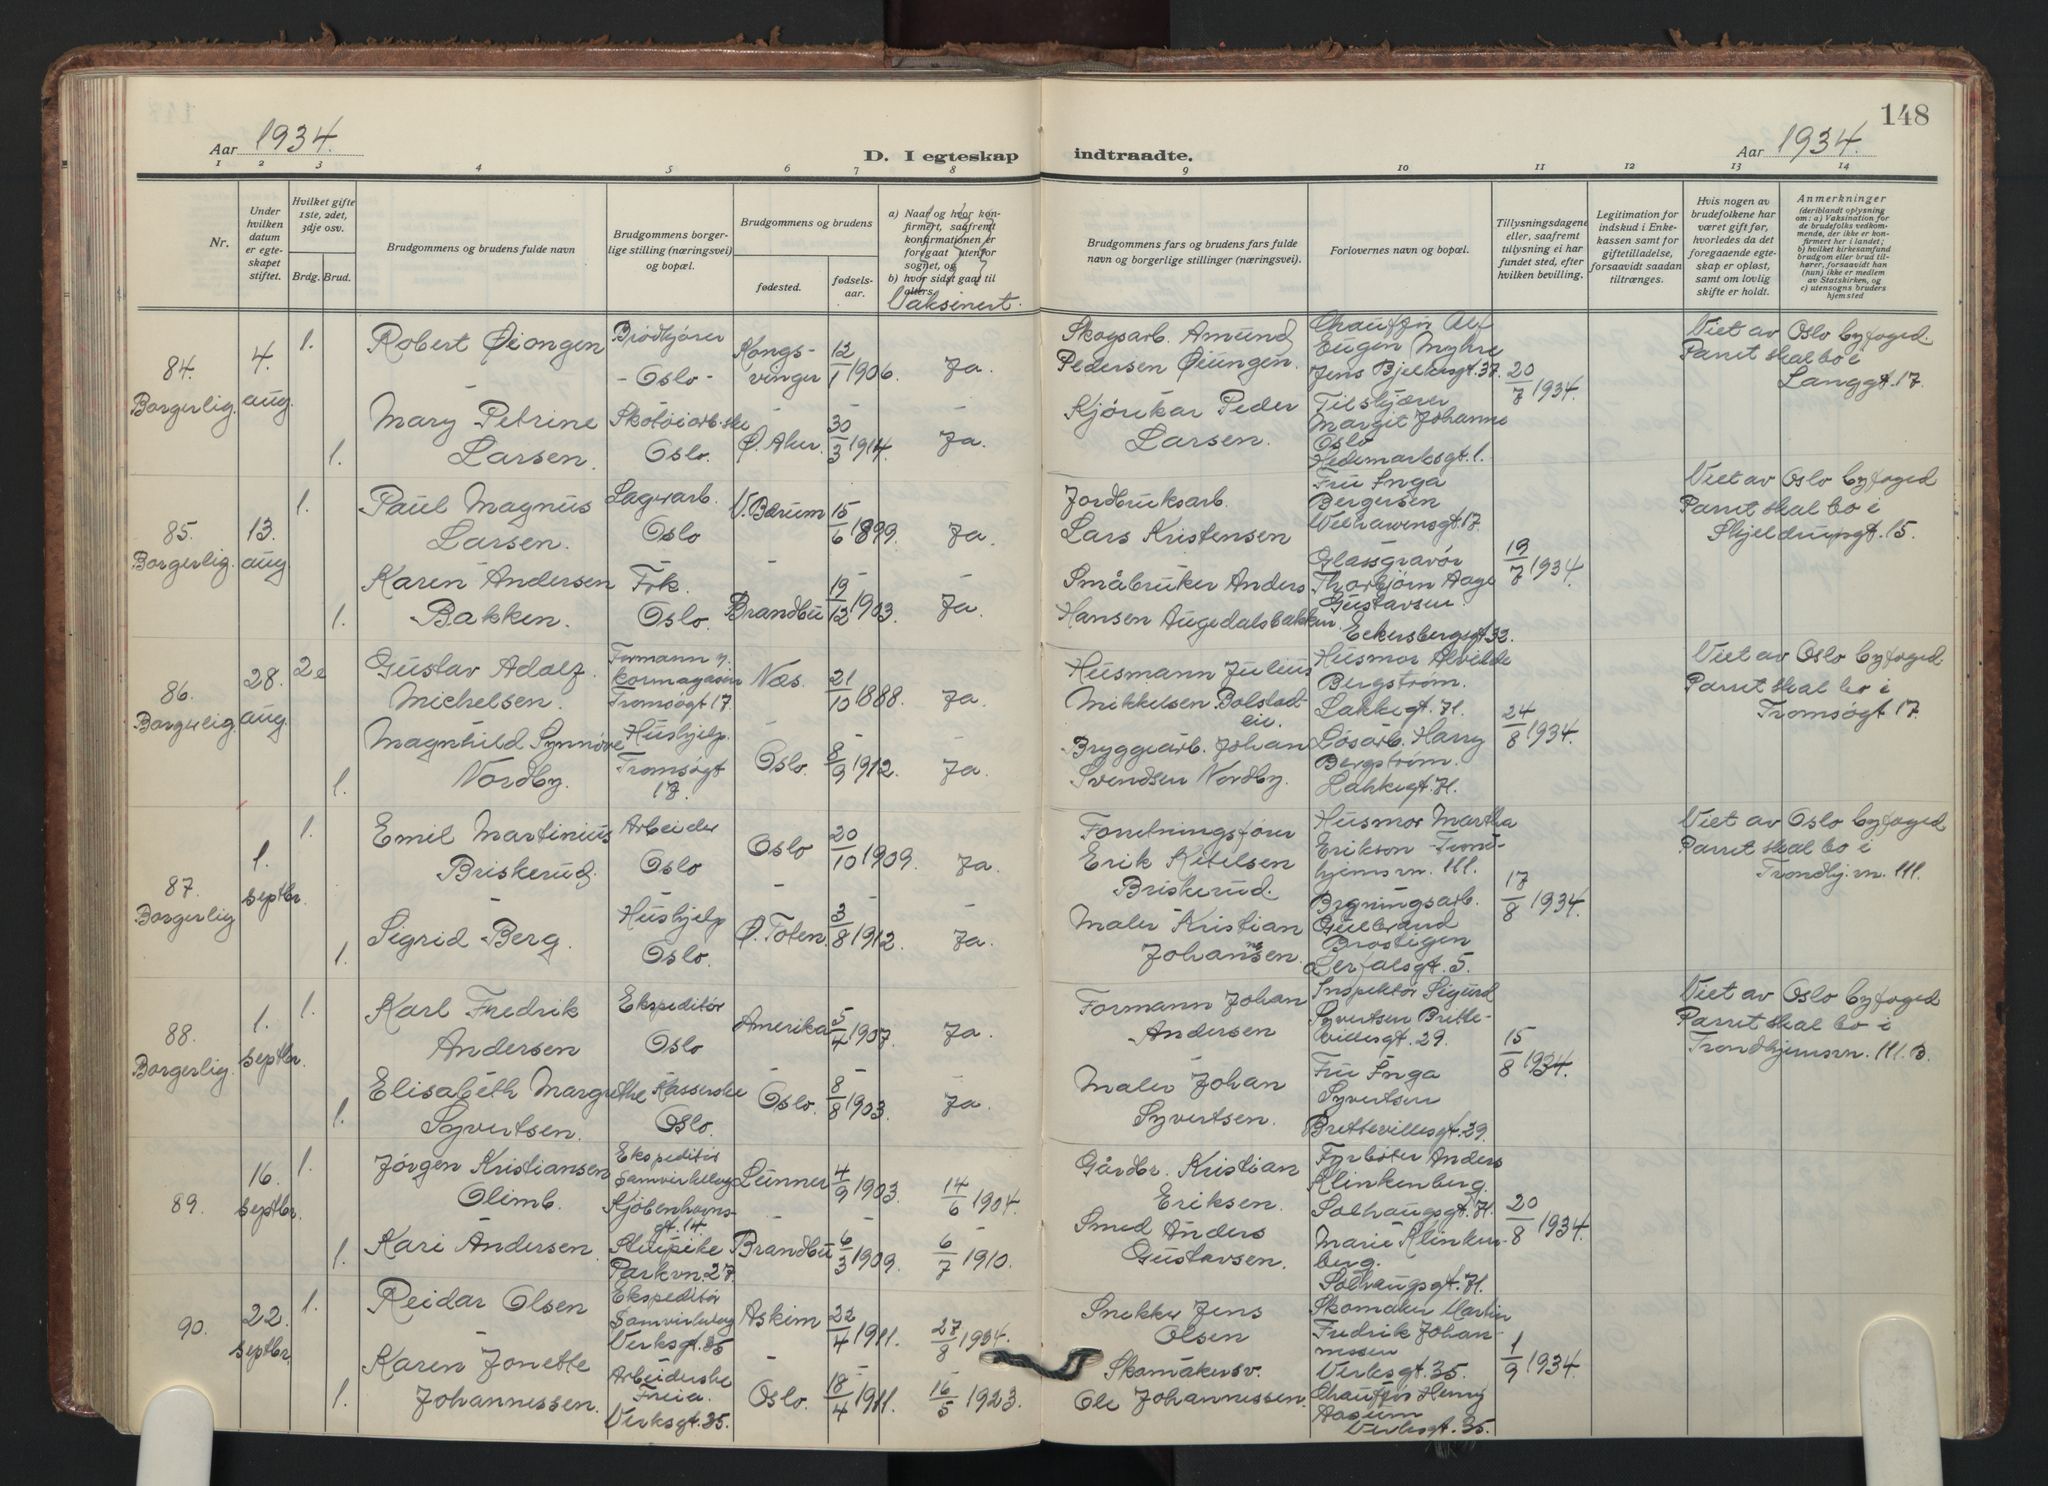 148
Aar 1934.
D. I egteskap
indtraadte.
Aar 1934.
1 2 3 4 5 6 7 8 9 10 11 12 13 14
Nr.
Under hvilken datum er egteskapet stiftet.
Hvilket gifte 1ste, 2det, 3dje osv.
Brdg. Brud.
Brudgommens og brudens fulde navn
Brudgommens borgerlige stilling (næringsvei) og bopæl.
Brudgommens og brudens
fødested.
fødselsaar.
a) Naar og hvor konfirmert, saafremt konfirmationen er foregaat utenfor sognet, og
b) hvor sidst gaat til alters.
Vaksinert.
Brudgommens fars og brudens fars fulde navn og borgerlige stillinger (næringsvei).
Forlovernes navn og bopæl.
Tillysningsdagene eller, saafremt tilysning ei har fundet sted, efter hvilken bevilling.
Legitimation for indskud i Enkekassen samt for giftetilladelse, forsaavidt saadan tiltrænges.
Hvis nogen av brudefolkene har været gift før, hvorledes da det foregaaende egteskap er opløst, samt om lovlig skifte er holdt.
Anmerkninger
(deriblandt oplysning om: a) Vaksination for de brudefolks vedkommende, der ikke er konfirmert her i landet; b) hvilket kirkesamfund brudgom eller brud tilhører, forsaavidt han (hun) ikke er medlem av Statskirken, og c) utensogns bruders hjemsted
84. Borgerlig.
4. aug.
1.
Robert Øiongen
Brødkjører
- Oslo -
Kongsvinger
12/1 1906.
Ja.
Skogsarb. Amund
Pedersen Øiungen.
Chauffør Alf
Eugen Myhre
Jens Bjelkesgt. 37.
20/7 1934.
Viet av Oslo byfoged.
Parret skal bo i
Langgt. 17.
1.
Mary Petrine
Larsen.
Skotøiarb.ske
Oslo.
Ø. Aker.
30/3 1914.
Ja.
Kjørekar Peder
Larsen.
Tilskjærer
Margit Johanne
Oslo
Hedemarksgt. 1.
85. Borgerlig.
13. aug.
1.
Paul Magnus
Larsen.
Lagerarb.
Oslo
V. Bærum
15/6 1899.
Ja.
Jordbruksarb.
Lars Kristensen
Fru Inga
Bergersen
Vielhavensgt. 17.
19/7 1934.
Viet av Oslo byfoged
Parret skal bo i
Skjeldrupgt. 15.
1.
Karen Andersen
Bakken.
Frk.
Oslo.
Brandbu
19/12 1903.
Ja.
Småbruker Anders
Hansen Augedalsbakken.
Glassgravør
Thorbjørn Aage
Gustavsen.
Eckersbergsgt. 32.
86. Borgerlig.
28. aug.
2e
Gustav Adolf
Michelsen.
Formann v.
kornmagasin
Tromsøgt 17.
Næs.
21/10 1888.
Ja.
Husmann Julius
Mikkelsen Bolstadeie.
Husmor Alvilde
Bergstrøm.
Lakkegt. 71.
24/8 1934.
Viet av Oslo byfoged
Parret skal bo i
Tromsøgt 17.
1.
Magnhild Synnøve
Nordby.
Hushjelp.
Tromsøgt
17.
Oslo.
8/9 1912.
Ja.
Bryggearb. Johan
Svendsen Nordby.
Løsarb. Harry
Bergstrøm.
Lakkegt. 71.
87. Borgerlig
1. septbr.
1.
Emil Martinius
Briskerud.
Arbeider
Oslo
Oslo
20/10 1909.
Ja.
Forretningsfører
Erik Ketelsen
Briskerud.
Husmor Martha
Erikson Trondhjemsvn. 111.
17/8 1934.
Viet av Oslo byfoged
Parret skal bo i
Trondhj.vn. 111.
1.
Sigrid Berg.
Hushjelp
Oslo.
Ø. Toten.
3/8 1912.
Ja.
Maler Kristian
Johansen.
Bygningsarb.
Gulbrand
Brostigen
Lerfalsgt. 5.
88. Borgerlig.
1. septbr.
1.
Karl Fredrik
Andersen
Ekspeditør
Oslo
Amerika
5/4 1907.
Ja.
Formann Johan
Andersen
Inspektør Sigurd
Syvertsen Brettevillesgt. 29.
15/8 1934.
Viet av Oslo byfoged
Parret skal bo i
Trondhjemsvn. 111. B.
1.
Elisabeth Margrethe
Syvertsen.
Kasserske
Oslo.
Oslo.
8/8 1903.
Ja.
Maler Johan
Syvertsen.
Fru Inga
Syvertsen
Brettevillesgt. 29.
89.
16. septbr.
1.
Jørgen Kristiansen
Olimb.
Ekspeditør
Samvirkelag
Kjøbenhavnsgt. 14
Lunner
4/9 1903.
14/6 1904.
Gårdbr. Kristian
Eriksen.
Fyrbøter Anders
Klinkenberg.
Solhaugsgt. 71.
20/8 1934.
1.
Kari Andersen.
Stuepike
Parkvn. 27.
Brandbu
6/3 1909.
6/7 1910.
Smed Anders
Gustavsen.
Marie Klinkenberg.
Solhaugsgt. 71.
90.
22. septbr.
1.
Reidar Olsen
Ekspeditør
Samvirkelag
Verksgt. 35
Askim
22/4 1911.
27/8 1934.
Snekker Jens
Olsen
Skomaker Martin
Fredrik Johannessen
Verksgt. 35.
1/9 1934.
1.
Karen Jonette
Johannessen.
Arbeiderske
Freia.
Verksgt. 35.
Oslo.
18/4 1911.
16/5 1923.
Skomakersv.
Ole Johannessen.
Chauffør Henry
Aasum
Verksgt. 35.